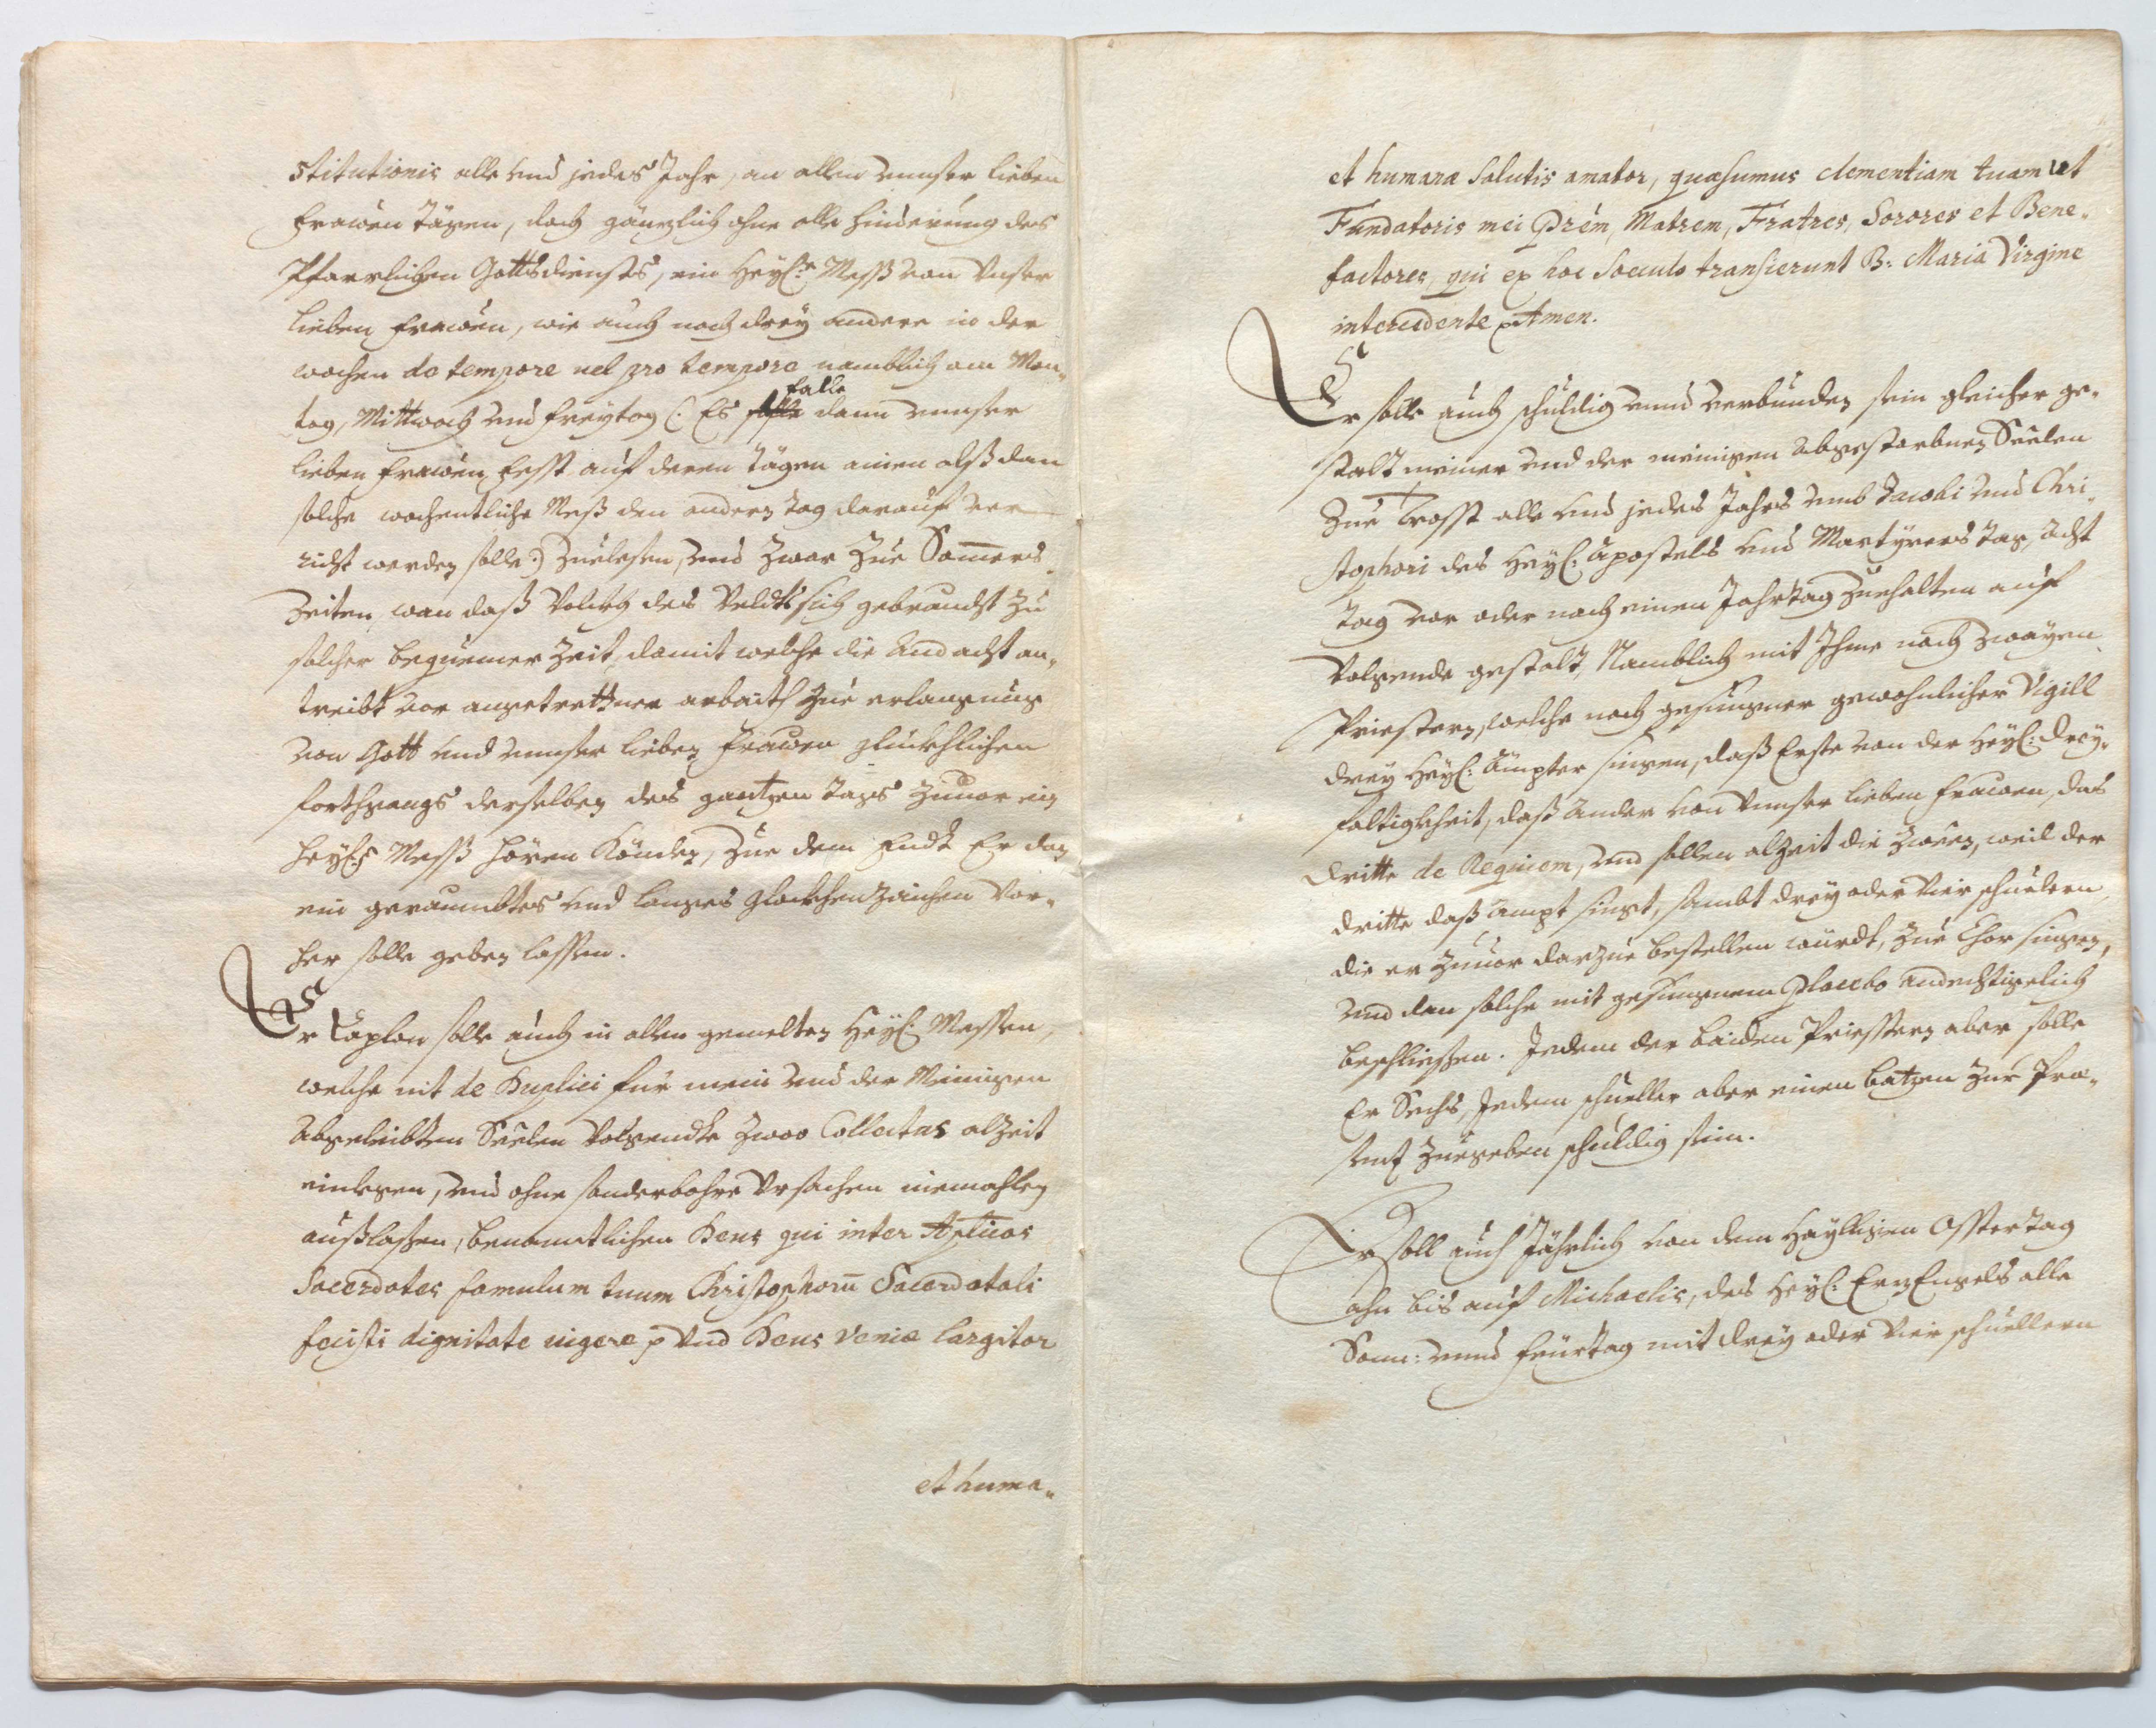 stitutionis alle und jedes Jahr, an allen unnser lieben
Frawen Tägen, doch gänzlich ohne alle hinderung des
Pfarrlichen Gottsdiensts, ein Heyl: Meß von Unser
lieben Frawen, wie auch noch drey andere in der
wochen de tempore uel pro tempore namblich am Mon„
falle
tag, Mittwoch und Freytag (: Es dann unnser
lieben Frawen Fesst auf deren tägen ainen alß dan
solche wochentliche Meß den andern tag darauf ver
richt werden solle :) Zuelesen, und Zwar Zue Som̄ers
Zeiten, wan daß Volckh des Veldts sich gebraucht Zu
solcher bequemer Zeit, damit welche die Andacht an„
treibt vor angetrettner arbaith Zue erlangnus
von Gott und unnser lieben Frawen glückhlichen
fortgangs derselben des gantzen tags Zuuor ein
heyl: Meß hören Könden, Zue dem Endt Er dan
ein geraumbtes und langes Glockhenzaichen Vor„
her solle geben lassen.
Er Caplan solle auch in allen gemelten Heyl: Messen,
welche nit de Duplici für mein und der Meinigen
Abgeleibten Seelen Volgendte Zwoo Collectas alzeit
einlegen, und ohne sonderbahre Ursachen niemahlen
außlaßen, benamtlichen Deus qui inter Aplicos
Sacerdotes famulum tuum Christophorū Sacerdotali
fecisti dignitate uigere p Und Deus Veniæ largitor
et huma„
et humanæ Salutis amator, quæsumus clementiam tuam ut
Fundatoris mei Prēm, Matrem, Fratres, Sorores et Bene„
factores, qui ex hoc Soeculo transierunt B: Maria Virgine
intercedente p Amen.
Er solle auch schuldig unnd verbunden sein gleicher ge„
stalt meiner und der meinigen Abgestorbnen Seelen
Zue Trosst alle und jedes Jahrs umb Jacobi und Chri„
stophori des Heyl: Apostels und Martyrers tag, Acht
tag vor oder nach einen Jahrtag Zuehalten auf
Volgende gestalt, Namblich mit Ihme noch Zwayen
Priestern, welche nach gesungner gewohnlicher Vigill
drey Heyl: Ämpter singen, daß Erste von der Heyl: Drey„
faltigkheit, daß ander von Unnser lieben Frawen, das
dritte de Requiem, und sollen alzeit die Zween, weil der
dritte daß ampt singt, sambt drey oder Vier schuelern,
die er Zuuor darzue bestellen würdt, Zue Chor singen,
und dan solche mit gesungnem Placebo andechtigelich
beschliessen. Jedem der baiden Priestern aber solle
Er Sechs, Jedem schueller aber einen batzen Zur Præ„
senz Zuegeben schuldig sein.
Er soll auch Jährlich von dem Heylligen Osstertag
ahn bis auf Michaelis, des Heyl: ErzEngels alle
Sonn: unnd Feurtag mit drey oder Vier schuellern